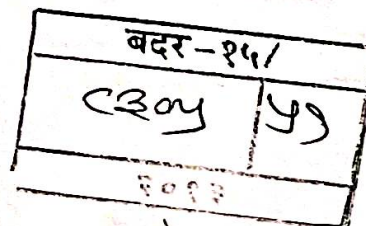 बदर -१५/
८३०५ ५१
२०१२